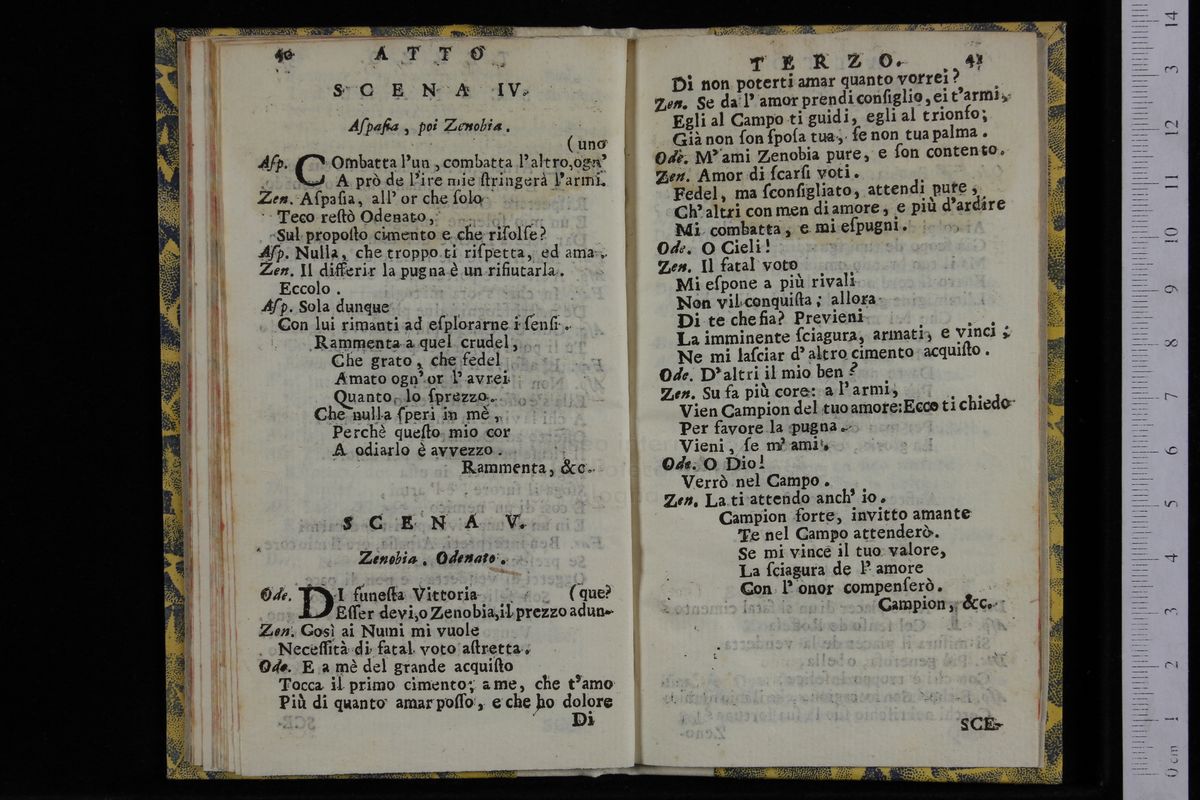 40 ATTO
SCENA IV.
Aſpaſia, poi Zenobia.
(uno
Aſp. COmbatta l'un, combatta l'altro, ogn'
A prò de l'ire mie ſtringerà l'armi.
Zen. Aſpaſia, all' or che ſolo
Teco reſtò Odenato,
Sul propoſto cimento e che riſolſe?
Aſp. Nulla, che troppo ti riſpetta, ed ama.
Zen. Il differir la pugna è un rifiutarla.
Eccolo.
Aſp. Sola dunque
Con lui rimanti ad eſplorarne i ſenſi.
Rammenta a quel crudel,
Che grato, che fedel
Amato ogn' or l' avrei
Quanto lo ſprezzo.
Che nulla ſperi in mè,
Perchè queſto mio cor
A odiarlo è avvezzo.
Rammenta, &c.
SCENA V.
Zenobia. Odenato.
Ode. DI funeſta Vittoria (que?
Eſſer devi, o Zenobia, il prezzo adun-
Zen. Così ai Numi mi vuole
Neceſſità di fatal voto aſtretta.
Ode. E a mè del grande acquiſto
Tocca il primo cimento; a me, che t'amo
Più di quanto amar poſſo, e che ho dolore
Di
TERZO. 41
Di non poterti amar quanto vorrei?
Zen. Se da l' amor prendi conſiglio, ei t'armi,
Egli al Campo ti guidi, egli al trionfo;
Già non ſon ſpoſa tua, ſe non tua palma.
Ode. M'ami Zenobia pure, e ſon contento.
Zen. Amor di ſcarſi voti.
Fedel, ma ſconſigliato, attendi pure,
Ch' altri con men di amore, e più d'ardire
Mi combatta, e mi eſpugni.
Ode. O Cieli!
Zen. Il fatal voto
Mi eſpone a più rivali
Non vil conquiſta; allora
Di te che fia? Previeni
La imminente ſciagura, armati, e vinci;
Ne mi laſciar d' altro cimento acquiſto.
Ode. D'altri il mio ben?
Zen. Su fa più core: a l' armi,
Vien Campion del tuo amore: Ecco ti chiedo
Per favore la pugna.
Vieni, ſe m' ami.
Ode. O Dio!
Verrò nel Campo.
Zen. La ti attendo anch' io.
Campion forte, invitto amante
Te nel Campo attenderò.
Se mi vince il tuo valore,
La ſciagura de l' amore
Con l' onor compenſerò.
Campion, &c.
SCE-
0 cm 1 2 3 4 5 6 7 8 9 10 11 12 3 14